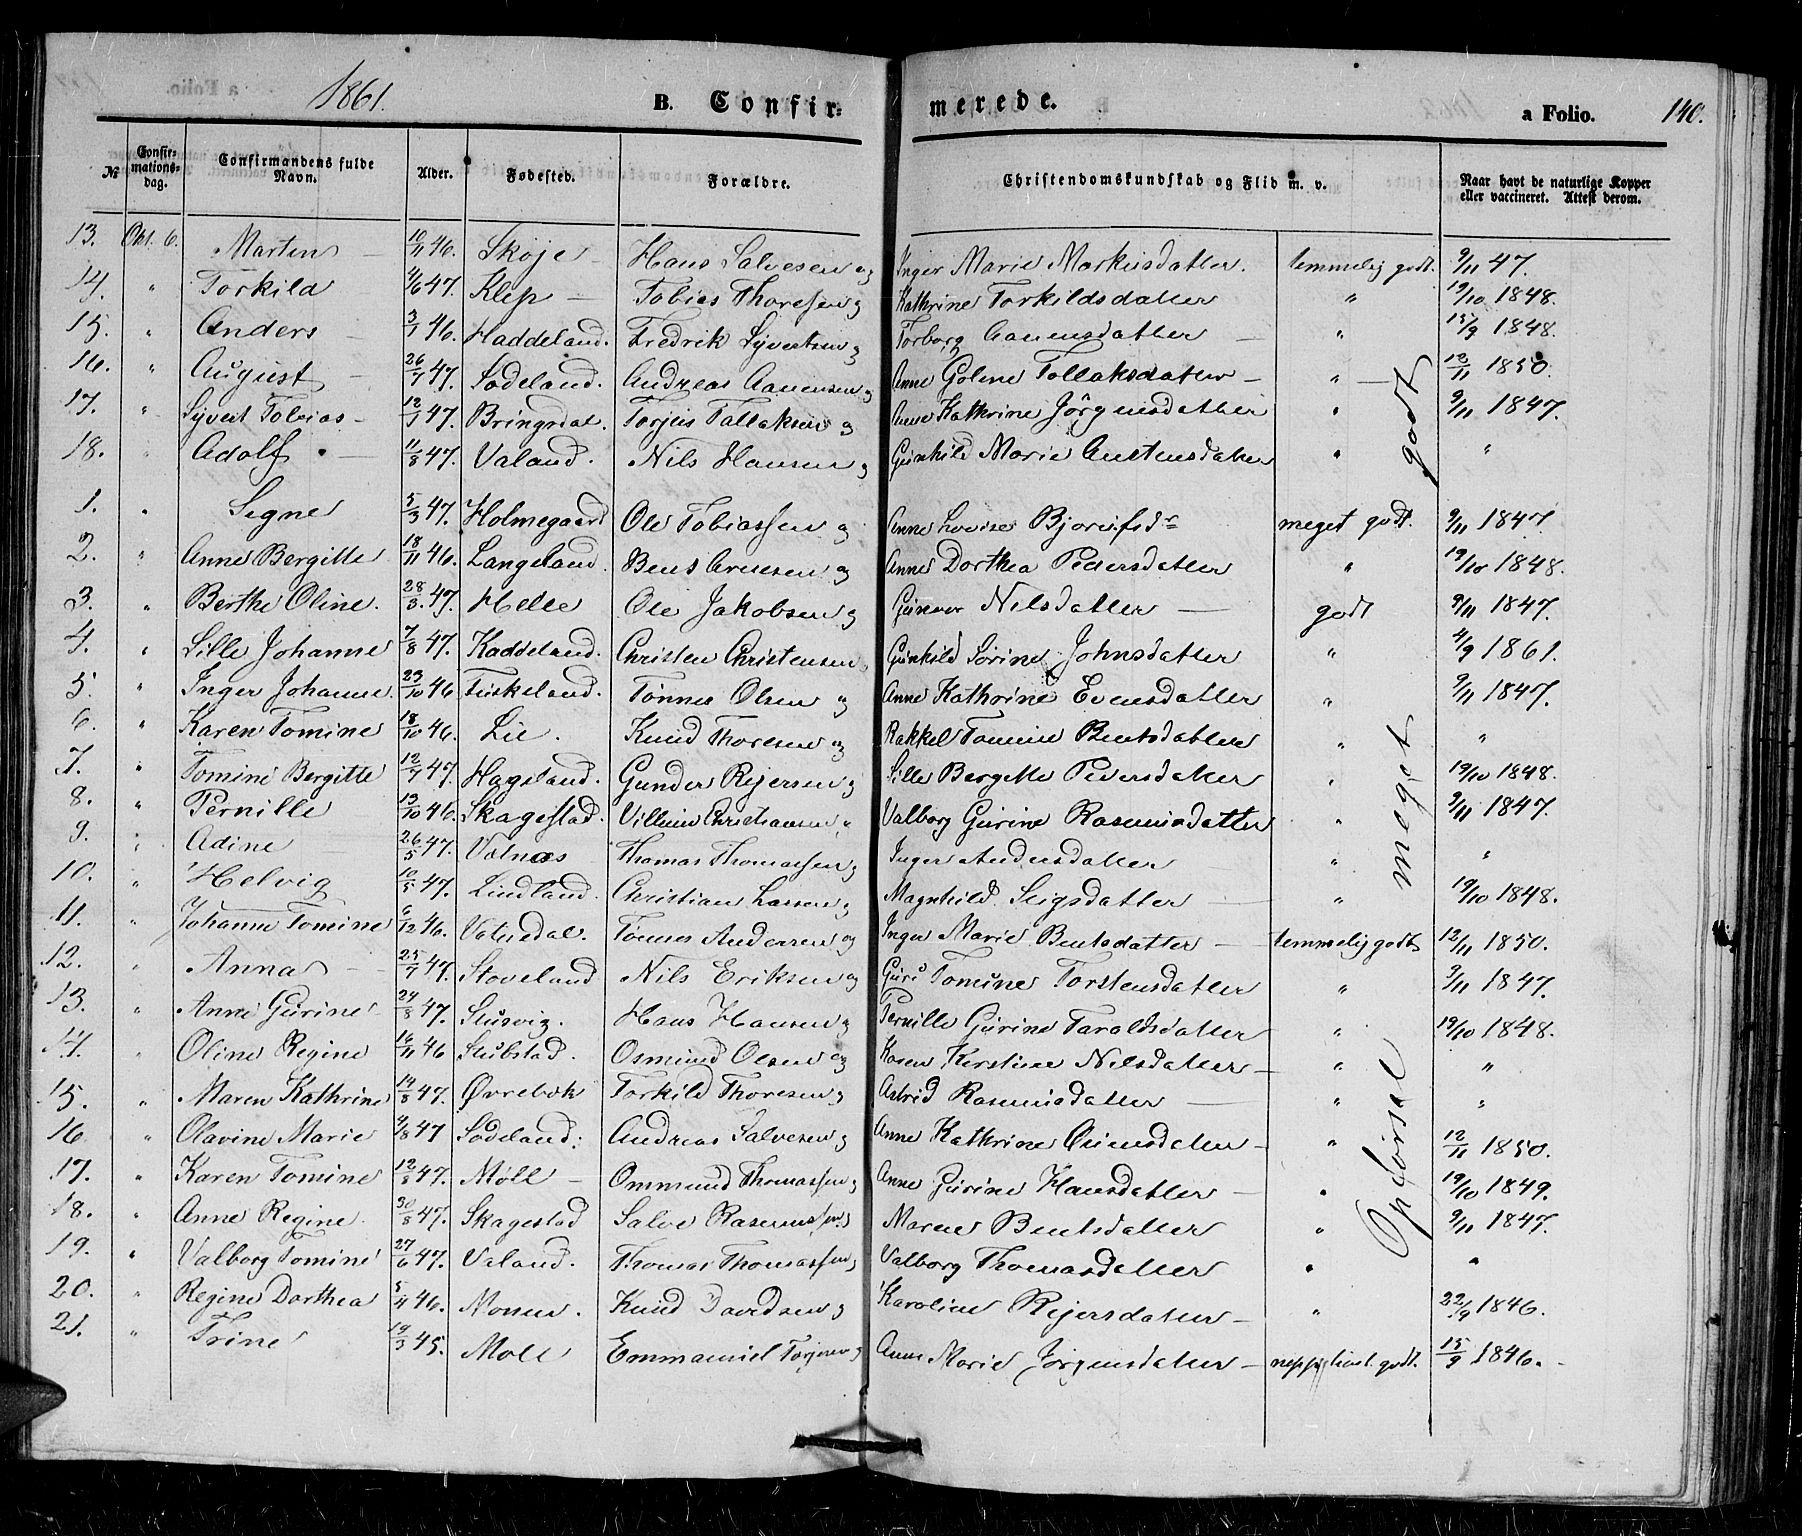 1861. B. Confir= merede. a Folio. 140.
№ Confir-mations-dag. Confirmandens fulde Navn. Alder. Fødested. Forældre. Christendomskundskab og Flid m. v. Naar havt de naturlige Kopper eller vaccineret. Attest derom.
13. Okt. 6. Marten 10/11 46. Skøje Hans Salvesen og Inger Marie Markusdatter. temmelig godt. 9/11 47.
14. " Torkild 4/6 47. Klep Tobias Thoresen og Kathrine Torkildsdatter " 19/10 1848.
15. " Anders 3/1 46. Haddeland. Fredrik Syvertsen og Torborg Aanensdatter " 15/9 1848.
16. " August 26/7 47. Sødeland. Andreas Aanensen og Anne Goline Tollaksdatter " 12/11 1850.
17. " Syvert Tobias 12/1 47. Bringsdal. Torjus Tallaksen og Anne Kathrine Jørgensdatter " 9/11 1847.
18. " Adolf 11/8 47. Valand. Nils Hansen og Gunhild Marie Austensdatter " "
1. " Segne 5/3 47. Holmegaard Ole Tobiassen og Anne Lovise Bjorufsdr meget godt. 9/11 1847.
2. " Anne Bergitte 18/11 46. Langeland. Bent Arnesen og Anne Dorthea Pedersdatter " 19/10 1848.
3. " Berthe Oline. 28/3. 47. Helle Ole Jakobsen og Gunvor Nilsdatter godt 9/11 1847.
4. " Sille Johanne 7/8 47. Haddeland. Christen Christensen Gunhild Sørine Johnsdatter " 4/9 1861.
5. " Inger Johanne. 23/10 46 Fuskeland. Tønnes Olsen og Anne Kathrine Evensdatter " 9/11 1847.
6. " Karen Tomine 18/10 46. Lie. Knud Thoresen og Rakkel Tomine Bentsdatter " "
7. " Tomine Bergitte 12/7 47. Hageland. Gunder Rejersen og Sille Bergitte Pedersdatter " 19/10 1848.
8. " Pernille 13/10 46. Skagestad. Villum Christiansen " Valborg Gurine Rasmusdatter " 9/11 1847.
9. " Adine 26/5 47. Valnæs Thomas Thomassen og Inger Andersdatter " "
10. " Helvig 10/5 47. Lindland. Christian Larsen og Magnhild Seigsdatter " 19/10 1848.
11. " Johanne Tomine 6/12 46. Vatnedal. Tønnes Andersen og Inger Marie Bentsdatter temmelig godt 12/11 1850.
12. " Anna 25/7 47. Stoveland Nils Eriksen og Guri Tomine Torstensdatter " 9/11 1847.
13. " Anne Gurine 24/8 47. Slusvig. Hans Hansen og Pernille Gurine Taraldsdatter " 19/10 1848.
14. " Oline Regine 16/11 46 Stubstad. Osmund Olsen og Karen Kirstine Nilsdatter " "
15. " Maren Kathrine 14/8 47. Øvrebøk Torkild Thoresen og Astrid Rasmusdatter " "
16. " Olavine Marie 4/8 47 Sødeland. Andreas Salvesen og Anne Kathrine Evensdatter " 12/11 1850.
17. " Karen Tomine 12/8 47. Møll Ommund Thomassen og Anne Gurine Hansdatter " 19/10 1849.
18. " Anne Regine. 30/8 47. Skagestad Salve Rasmussen Maren Bentsdatter " 9/11 1847.
19. " Valborg Tomine 27/6 47. Valand. Thomas Thomassen Valborg Thomasdatter " "
20. " Regine Dorthea 5/11 46. Monen. Knud Davidsen og Karoline Rejersdatter " 22/9 1846.
21. " Trine 19/3 45. Moll Emmanuel Torjusen og Anne Marie Jørgensdatter neppe godt. 15/9 1846.
Opførsel meget godt